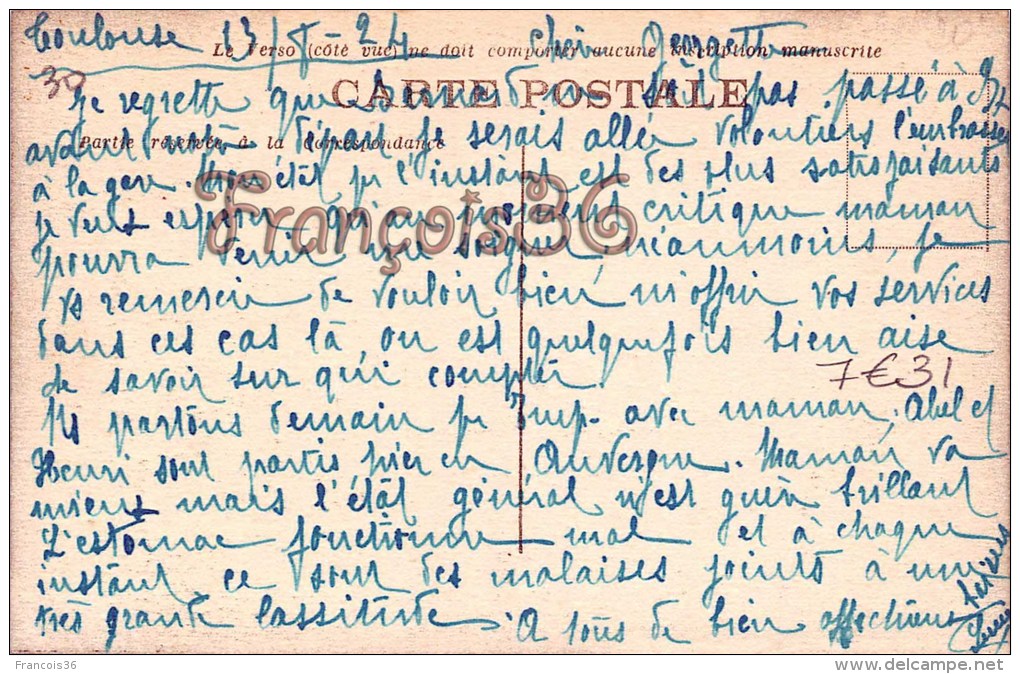 Toulouse 13/8-24 Chère Georgette
Le Verso (côté vue) ne doit comporter aucune inscription manuscrite
30
CARTE POSTALE
Je regrette que ne soit pas passé à
Partie réservée à la Correspondance
avant votre départ je serais allée volontiers l'embrasser
à la gare. Mon état pr l'instant est des plus satisfaisants
je veux espérer qu'au moment critique maman
François36
pourra venir me soigner, néanmoins, je
vs remercie de vouloir bien m'offrir vos services
dans ces cas là, on est quelquefois bien aise
de savoir sur qui compter
7€31
Ns partons demain pr avec maman, Abel et
Henri sont partis hier en Auvergne. Maman va
mieux mais l'état général n'est guère brillant
L'estomac fonctionne mal et à chaque
instant ce sont des malaises joints à une
très grande lassitude. A tous de bien affectueux baisers
François36
www.delcampe.net